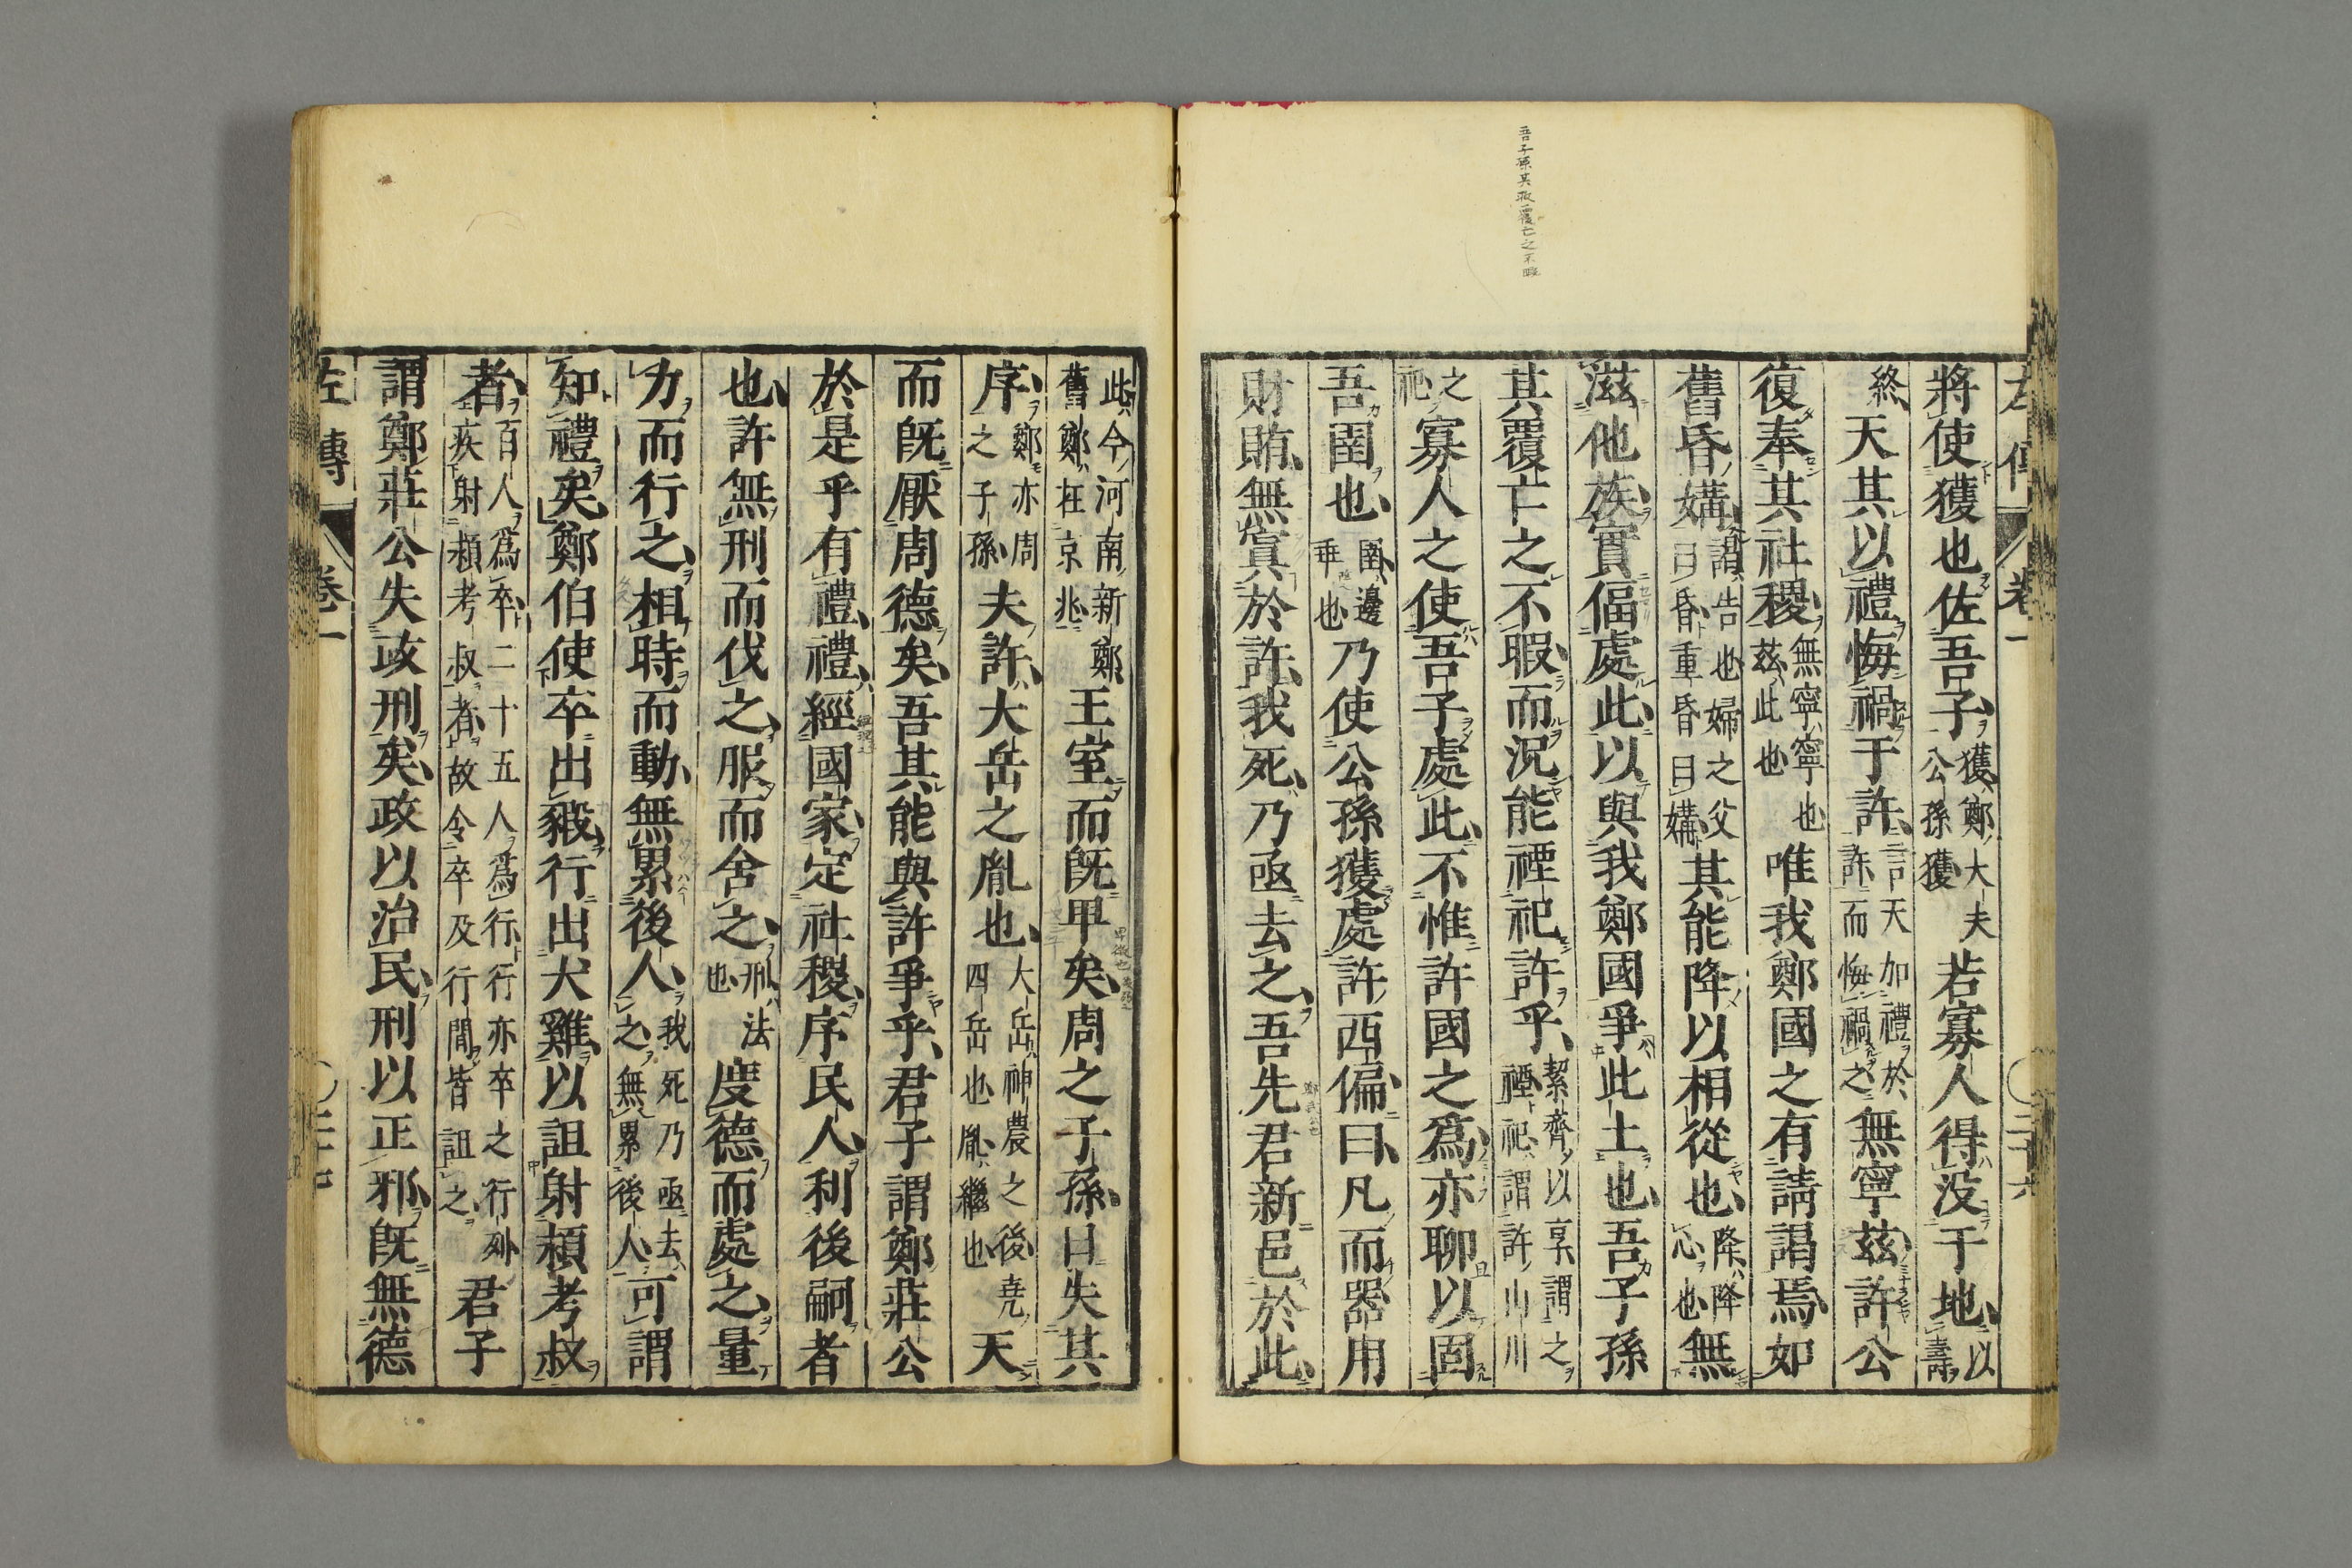 吾子孫其覆亡之不暇
左傳 卷一 〇二十六
將使獲也佐吾子獲鄭大夫公孫獲若寡人得没于地以壽
終天其以禮悔禍于許言天加禮於許而悔禍之無寧茲許公
復奉其社稷無寧寧也茲此也唯我鄭國之有請謁焉如
舊昏媾謁告也婦之父曰昏重昏曰媾其能降以相從也降降心也無
滋他族實偪處此以與我鄭國爭此土也吾子孫
其覆亡之不暇而況能禋祀許乎絜齊以享謂之禋祀謂許山川
之祀寡人之使吾子處此不惟許國之爲亦聊以固
吾圉也圉邊垂也乃使公孫獲處許西偏曰凡而器用
財賄無寘於許我死乃亟去之吾先君新邑於此
此今河南新鄭舊鄭在京兆王室而旣卑矣周之子孫日失其
序鄭亦周之子孫夫許大岳之胤也大岳神農之後堯四岳也胤繼也天
而旣厭周德矣吾其能與許爭乎君子謂鄭莊公
於是乎有禮禮經國家定社稷序民人利後嗣者
也許無刑而伐之服而舍之刑法也度德而處之量
力而行之相時而動無累後人我死乃亟去之無累後人可謂
知禮矣鄭伯使卒出豭行出犬雞以詛射潁考叔
者百人爲卒二十五人爲行行亦卒之行列疾射潁考叔者故令卒及行間皆詛之君子
謂鄭莊公失政刑矣政以治民刑以正邪旣無德
左傳 卷一